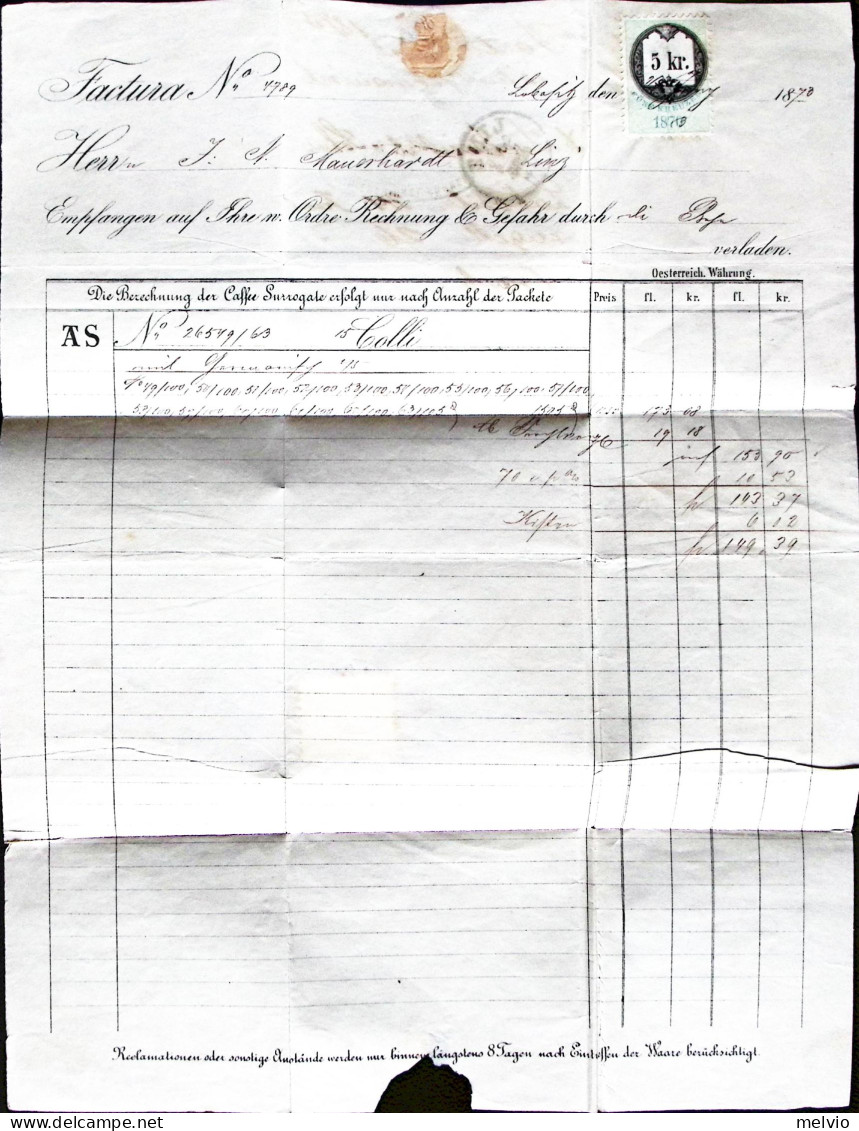 Factura No 4709
Lobositz den 1873
5 kr.
1873
Herrn J. A. Mauerhardt Linz
LINZ
Empfangen auf Ihre w. Ordre Rechnung & Gefahr durch di Post
verladen.
Oesterreich. Währung.
Die Berechnung der Caffee Surrogate erfolgt nur nach Anzahl der Packete Preis fl. kr. fl. kr.
AS No 26549/63 15 Colli
mit
49/100, 50/100, 51/100, 52/100, 53/100, 54/100, 55/100, 56/100, 57/100,
173 08
19 18
153 90
10 53
143 37
Kisten 6 02
149.39
Reclamationen oder sonstige Anstände werden nur binnen längstens 8 Tagen nach Eintreffen der Waare berücksichtigt.
melvio